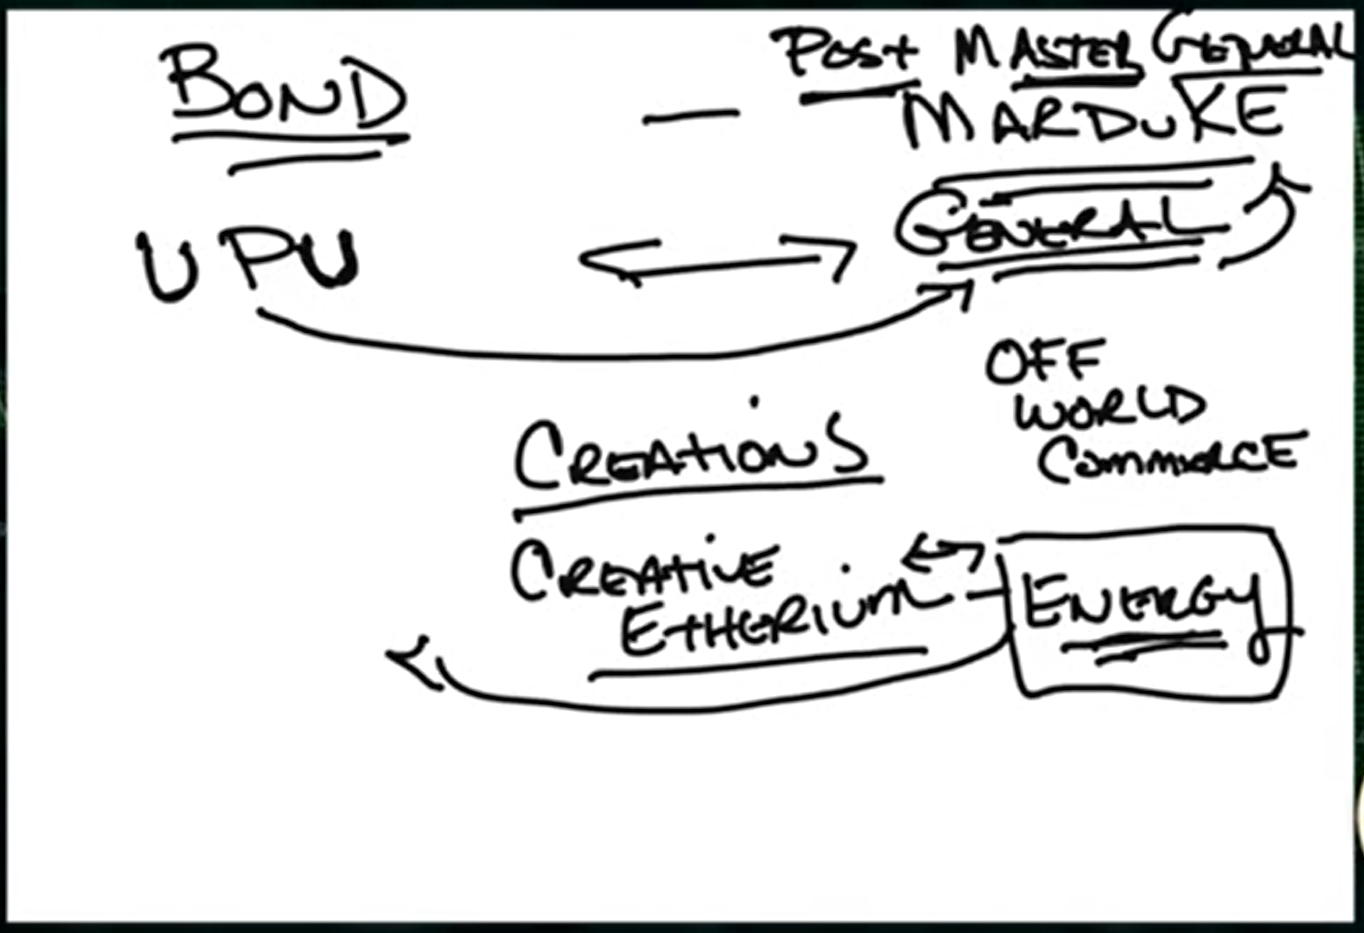 BOND
POST MASTER GENERAL
MARDUKE
UPU
GENERAL
OFF
WORLD
COMMERCE
CREATIONS
CREATIVE
ETHERIUM
ENERGY